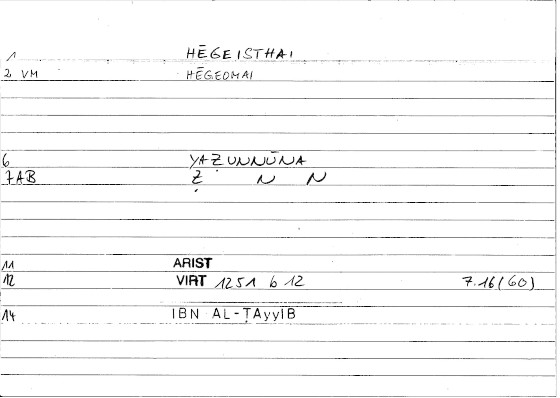 1 HĒGEISTHAI
2 VM HĒGEOMAI
6 YAẒUNNŪNA
7AB Ẓ N N
11 ARIST
12 VIRT 1251 b 12 7.16(60)
14 IBN AL-ṬAyyIB